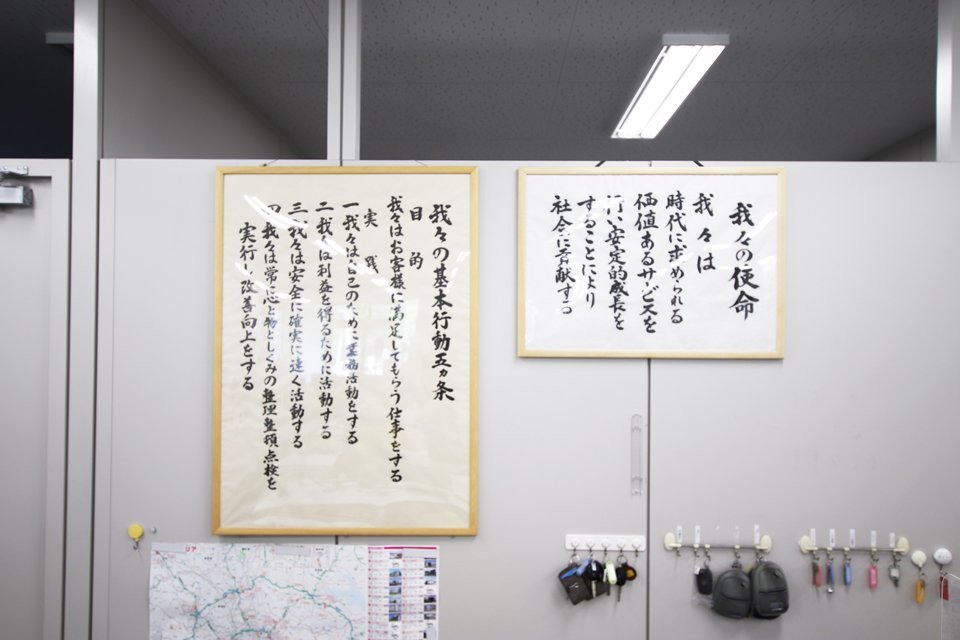 我々の基本行動五カ条
目的
我々はお客様に満足してもらう仕事をする
実践
一 我々は自己のために業務活動をする
二 我々は利益を得るために活動する
三 我々は安全に確実に速く活動する
我々は常に心と物としくみの整理整頓点検を
実行し改善向上をする
我々の使命
我々は
時代に求められる
価値あるサービスを
行い安定的成長を
することにより
社会に貢献する